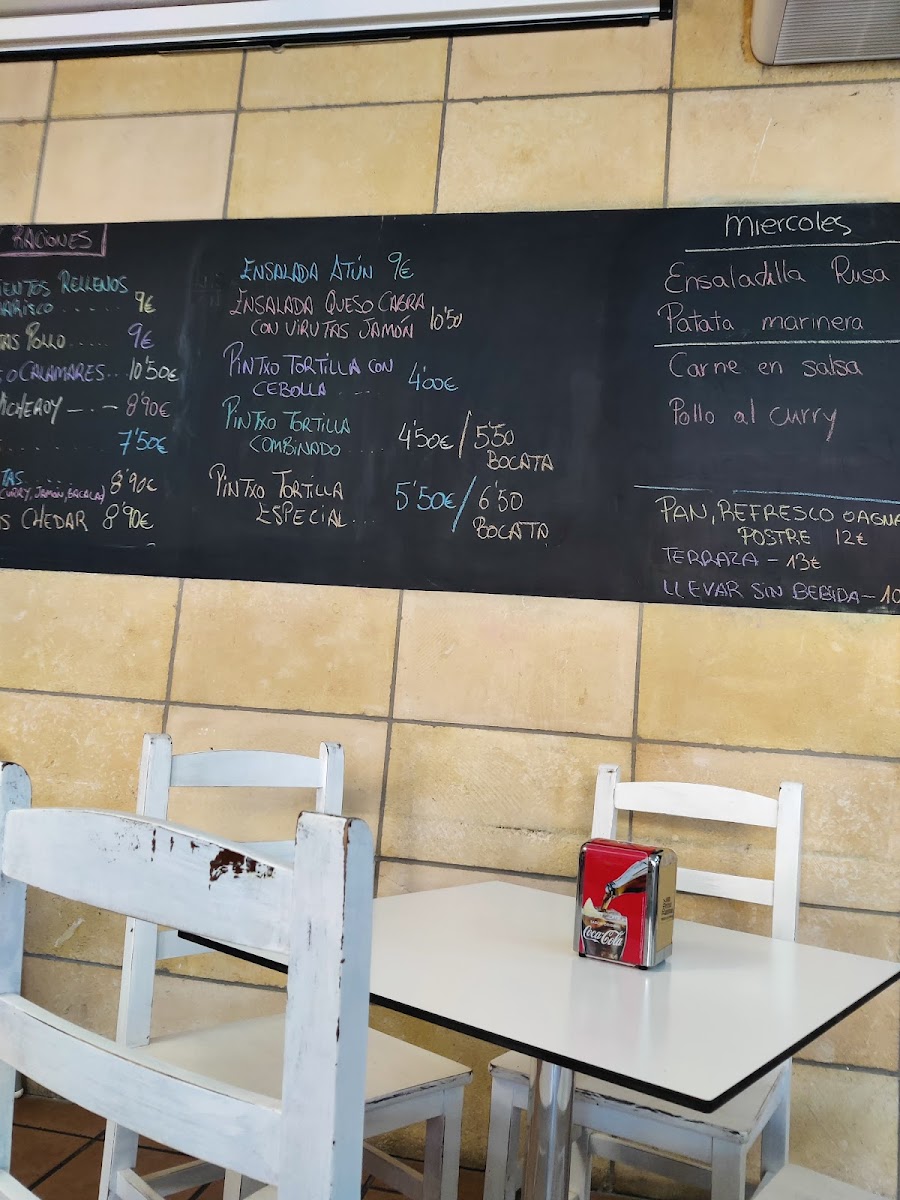 RACIONES
IENTOS RELLENOS
ARISCO ...... 9€
AS POLLO ..... 9€
O CALAMARES... 10'50€
MICHEROY —.— 8'90€
........ 7'50€
TAS .... 8'90€
(CURRY, JAMÓN, BACALA)
S CHEDAR 8'90€
ENSALADA ATÚN 9€
ENSALADA QUESO CABRA
CON VIRUTAS JAMÓN 10'50
PINTXO TORTILLA CON
CEBOLLA .... 4'00€
PINTXO TORTILLA
COMBINADO .... 4'50€/5'50
BOCATA
PINTXO TORTILLA
ESPECIAL... 5'50€/6'50
BOCATA
Miercoles
Ensaladilla Rusa
Patata marinera
Carne en salsa
Pollo al curry
PAN, REFRESCO O AGUA
POSTRE 12€
TERRAZA - 13€
LLEVAR SIN BEBIDA - 10
Coca-Cola